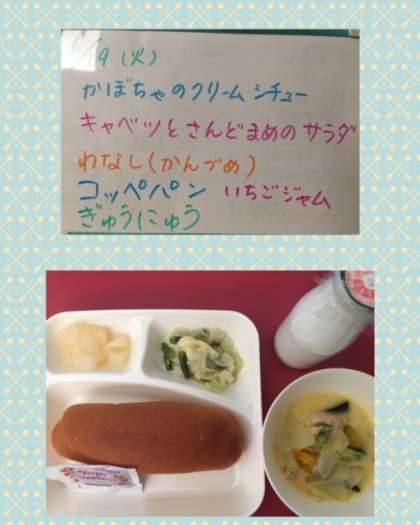 6/19 (火)
かぼちゃのクリームシチュー
キャベツとさんどまめのサラダ
わなし(かんづめ)
コッペパン いちごジャム
ぎゅうにゅう